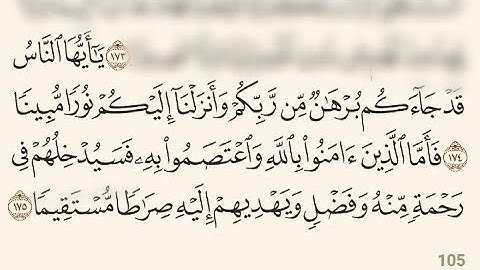 ١٧٣ يَٰٓأَيُّهَا ٱلنَّاسُ
قَدۡ جَآءَكُم بُرۡهَٰنٞ مِّن رَّبِّكُمۡ وَأَنزَلۡنَآ إِلَيۡكُمۡ نُورٗا مُّبِينٗا
١٧٤ فَأَمَّا ٱلَّذِينَ ءَامَنُواْ بِٱللَّهِ وَٱعۡتَصَمُواْ بِهِۦ فَسَيُدۡخِلُهُمۡ فِي
رَحۡمَةٖ مِّنۡهُ وَفَضۡلٖ وَيَهۡدِيهِمۡ إِلَيۡهِ صِرَٰطٗا مُّسۡتَقِيمٗا ١٧٥
105